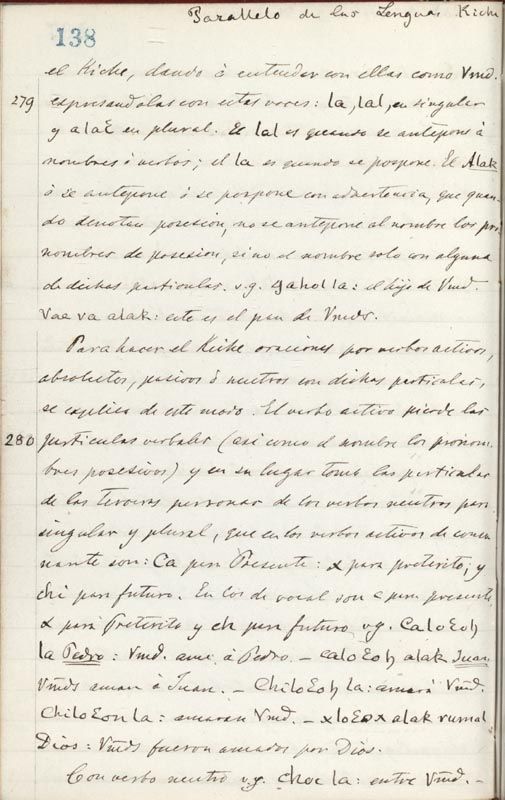 Parallelo de las Lenguas Kiche
138
el Kiche, dando á entender con ellas como Vmd.
279 espresandolas con estas voces: la, lal, en singular
y alaƐ en plural. El lal es quando se antepone á
nombres ó verbos; el la es quando se pospone. El Alak
ó se antepone ó se pospone con advertencia, que quan-
do denotan posesion, no se antepone al nombre los pro
nombres de posesion, sino el nombre solo con alguna
de dichas particulas. v.g. gahol la: el hijo de Vmd.
Vae va alak: este es el pan de Vmds.
Para hacer el Kiche oraciones por verbos activos,
absolutos, pasivos ó neutros con dichas particulas,
se explica de este modo. El verbo activo pierde las
280 particulas verbales (asi como el nombre los pronom-
bres posesivos) y en su lugar toma las particulas
de las terceras personas de los verbos neutros para
singular y plural, que en los verbos activos de conso
nante son: Ca para Presente: x para preterito; y
chi para futuro. En los de vocal son c para presente,
x para Preterito y ch para futuro, v.g. CaloƐoh
la Pedro: Vmd. ama á Pedro. — caloƐoh alak Juan
Vmds aman á Juan. — ChiloƐoh la: amará Vmd.
ChiloƐon la: amaran Vmd. — xloƐox alak rumal
Dios: Vmds fueron amados por Dios.
Con verbo neutro v.g. choc la: entre Vmd. —